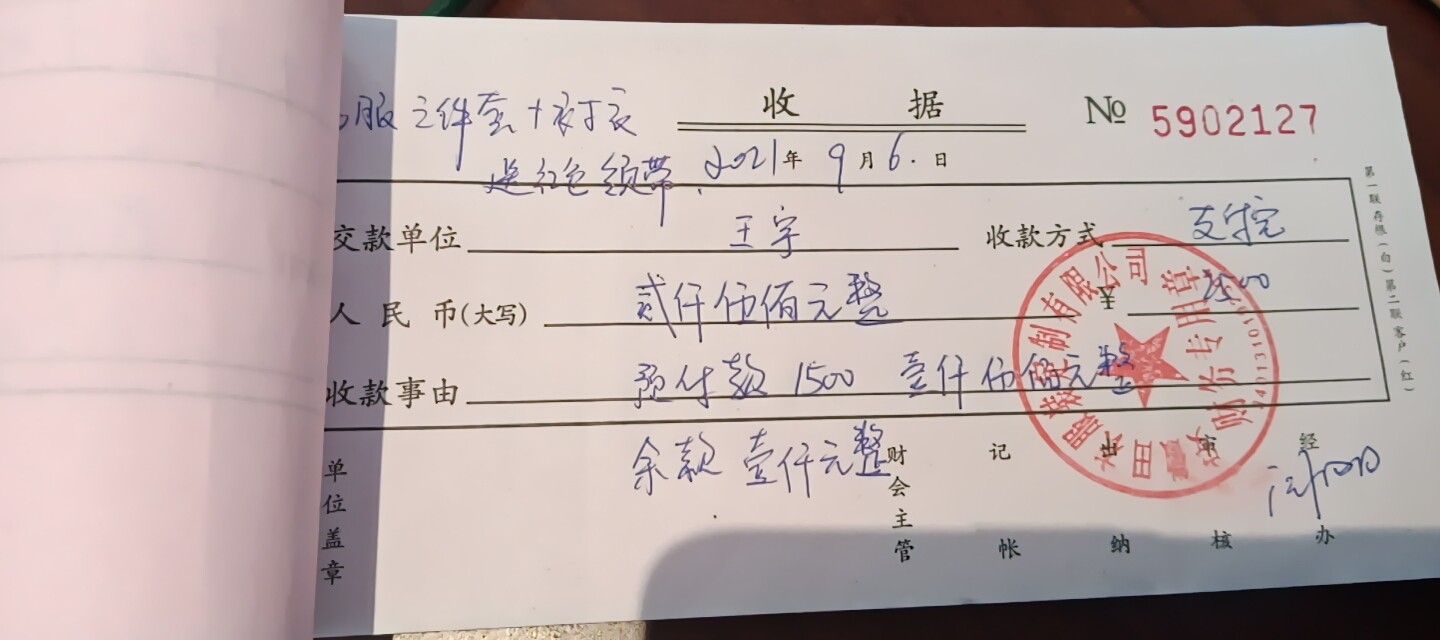 服 三件套+衬衣
收 据
№ 5902127
送红色领带
2021年 9月6.日
交款单位 王宇 收款方式 支付宝
人民币(大写) 贰仟伍佰元整 ¥ 2500
收款事由 预付款 1500 壹仟伍佰元整
余款 壹仟元整
单位盖章 财会主管 记帐 出纳 审核 经办
第一联存根(白)第二联客户(红)
服装 制有限公司
财务专用章